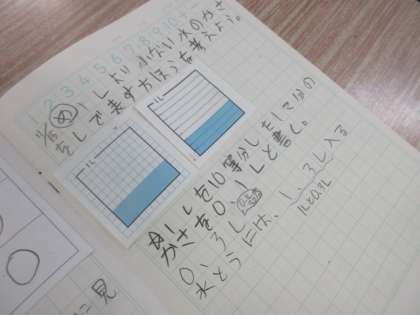 1 2 3 4 5 6 7 8 9 10
め 1Lより小ない水のかさ
をLで表す方ほうを考えよう。
1L
1L
1Lを10等分した1こ分の
かさを0.1Lと書く。
0.3L
水とうには、1.3L入る
1Lと0.3L
に見